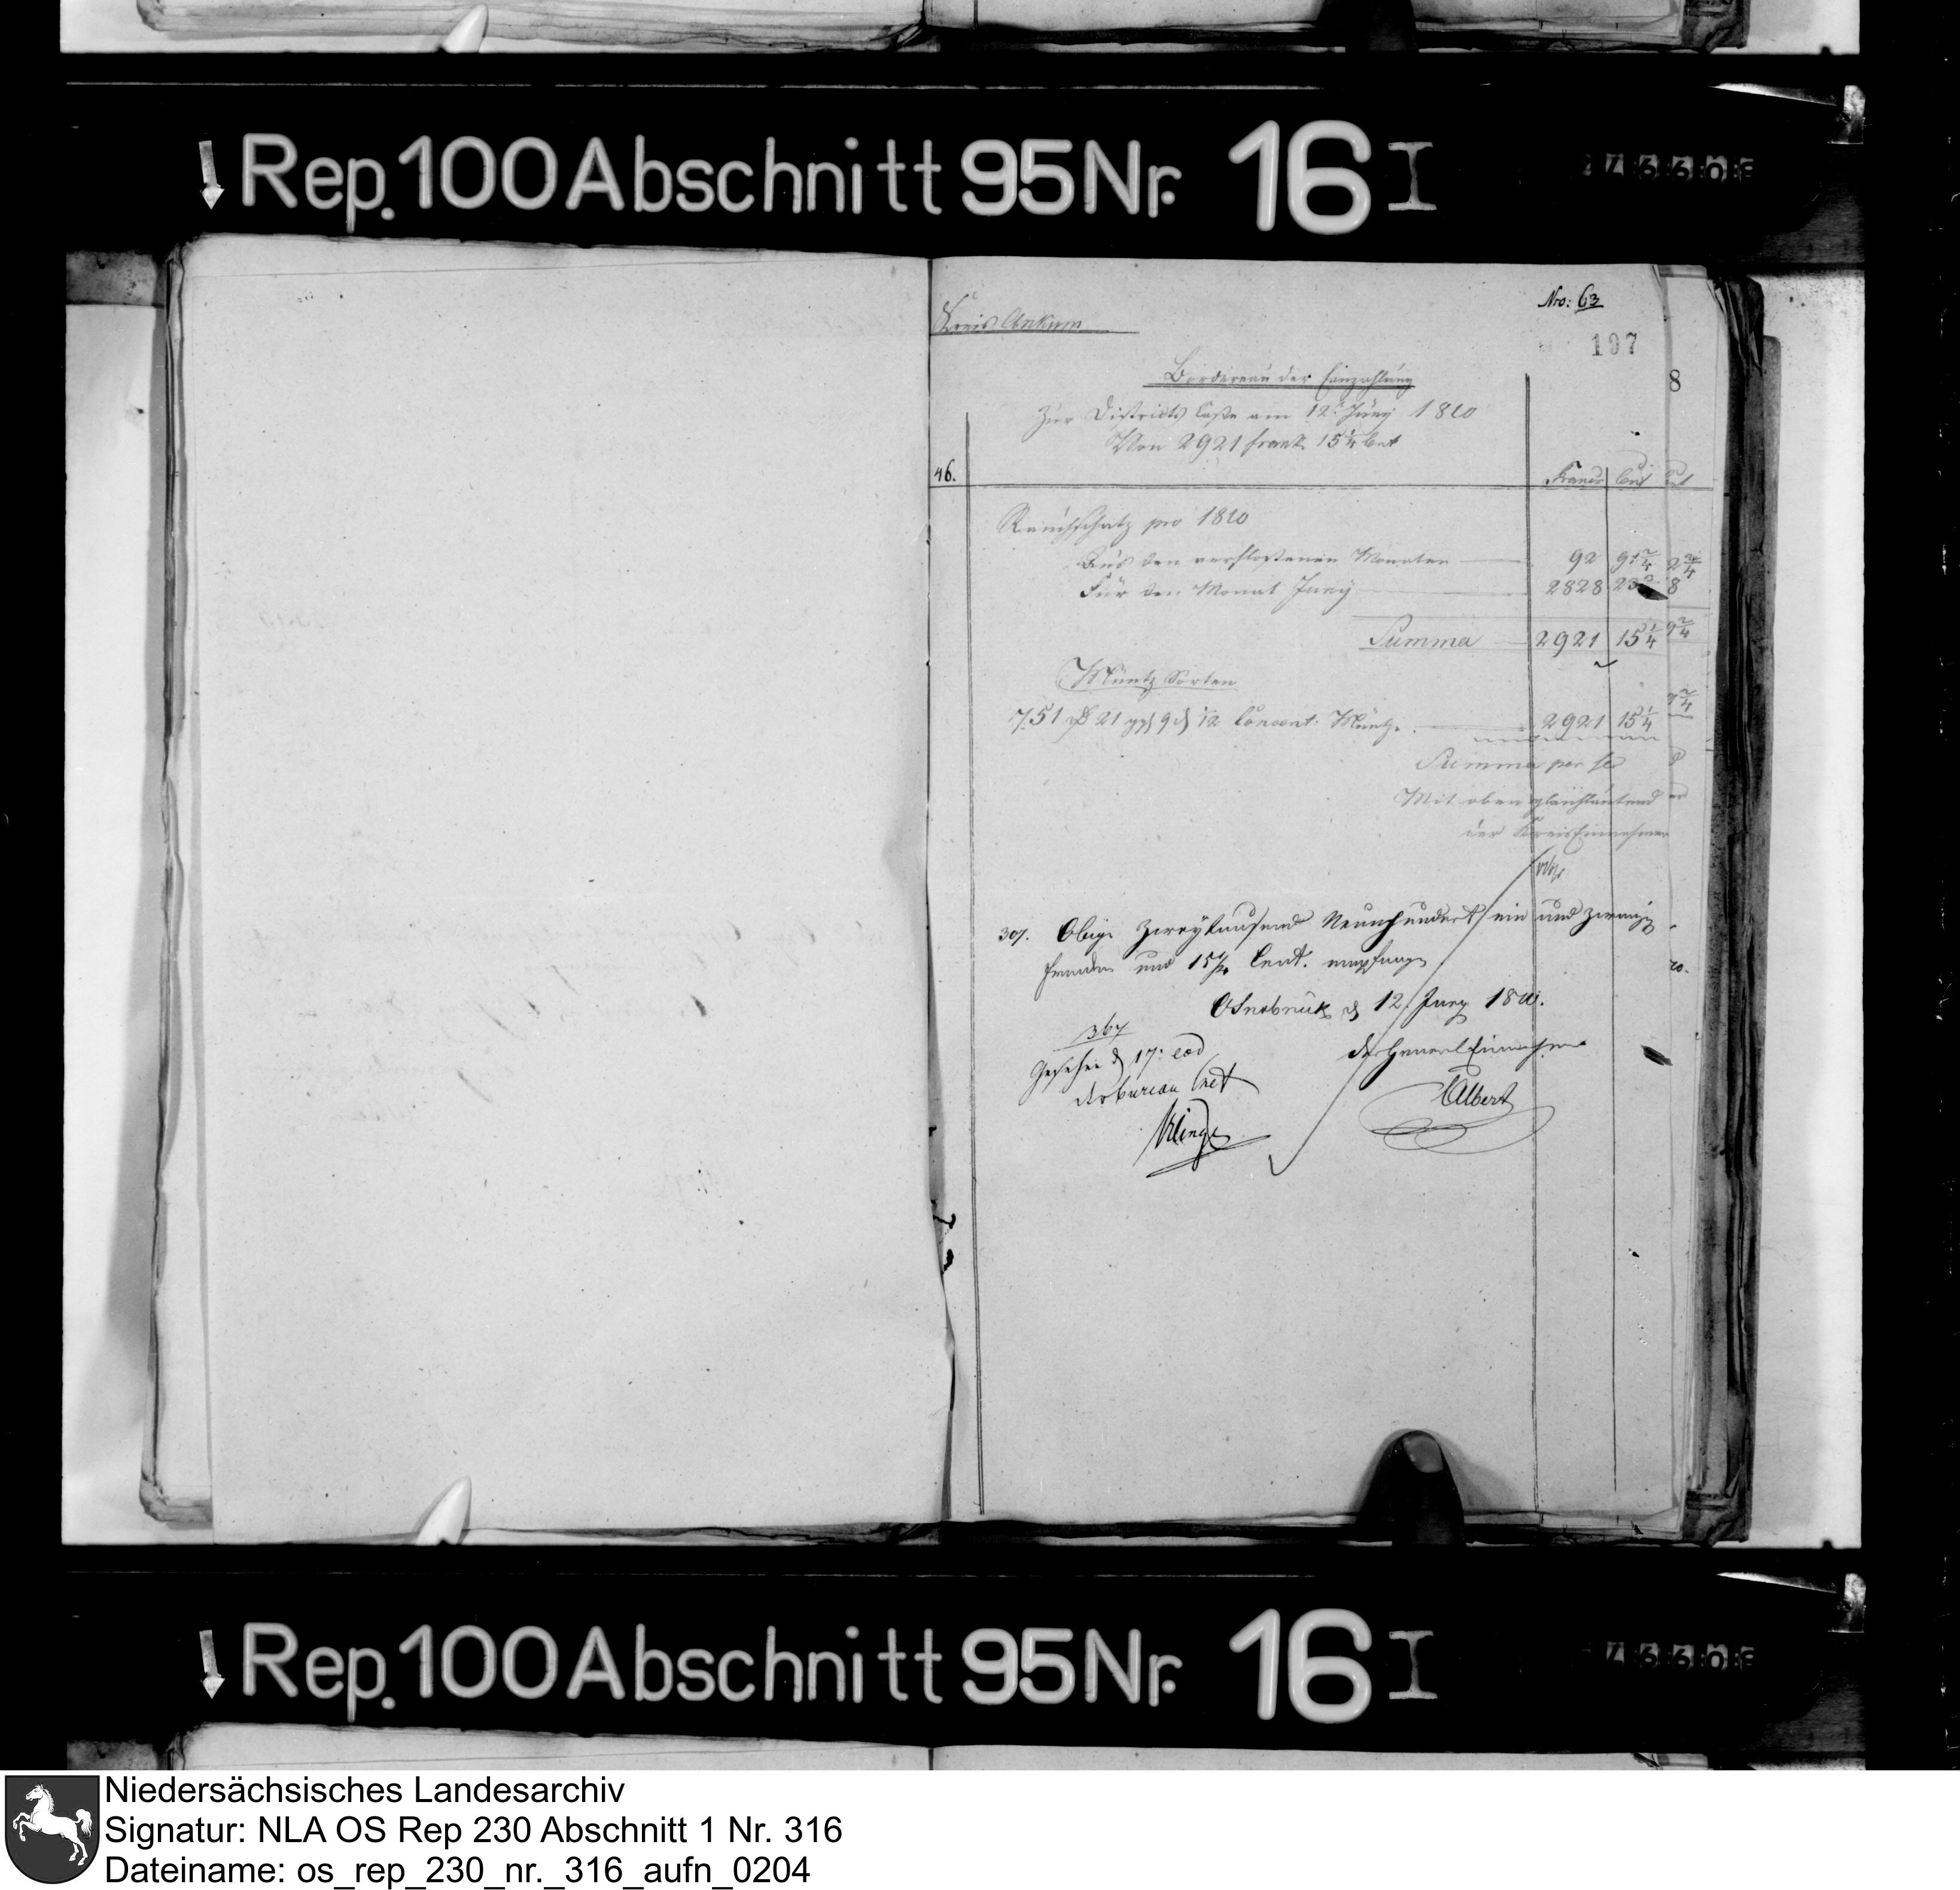 Rep. 100 Abschnitt 95 Nr. 16 I
Nro: 63
Kreis Ankum
197
8
Bordereau der Einzahlung
Zur Districts Casse am 12t Juny 1810
Von 2921 frank 15 1/4 Cent
46.
Francs Cent
Rauchschatz pro 1810
Aus den verflossenen Monaten 92 91 2/4
Für den Monat Juny 2828 23
Summa 2921 15 1/4
Müntz Sorten
751 21 ggl 9 1/2 Convent. Müntze. 2921 15 1/4
Summa per se
Mit oben gleichlautend
der Kreis Einnehmer
307. Obige Zweytausend Neunhundert ein und zwanzig
Franken und 15 1/4 Cent. empfangen
Osnabrück d 12. Juny 1810.
367
Gesehen d 17. eod
der General Einnehmer
der bureau Chef
Albert
Klinge
Rep. 100 Abschnitt 95 Nr. 16 I
Niedersächsisches Landesarchiv
Signatur: NLA OS Rep 230 Abschnitt 1 Nr. 316
Dateiname: os_rep_230_nr._316_aufn_0204